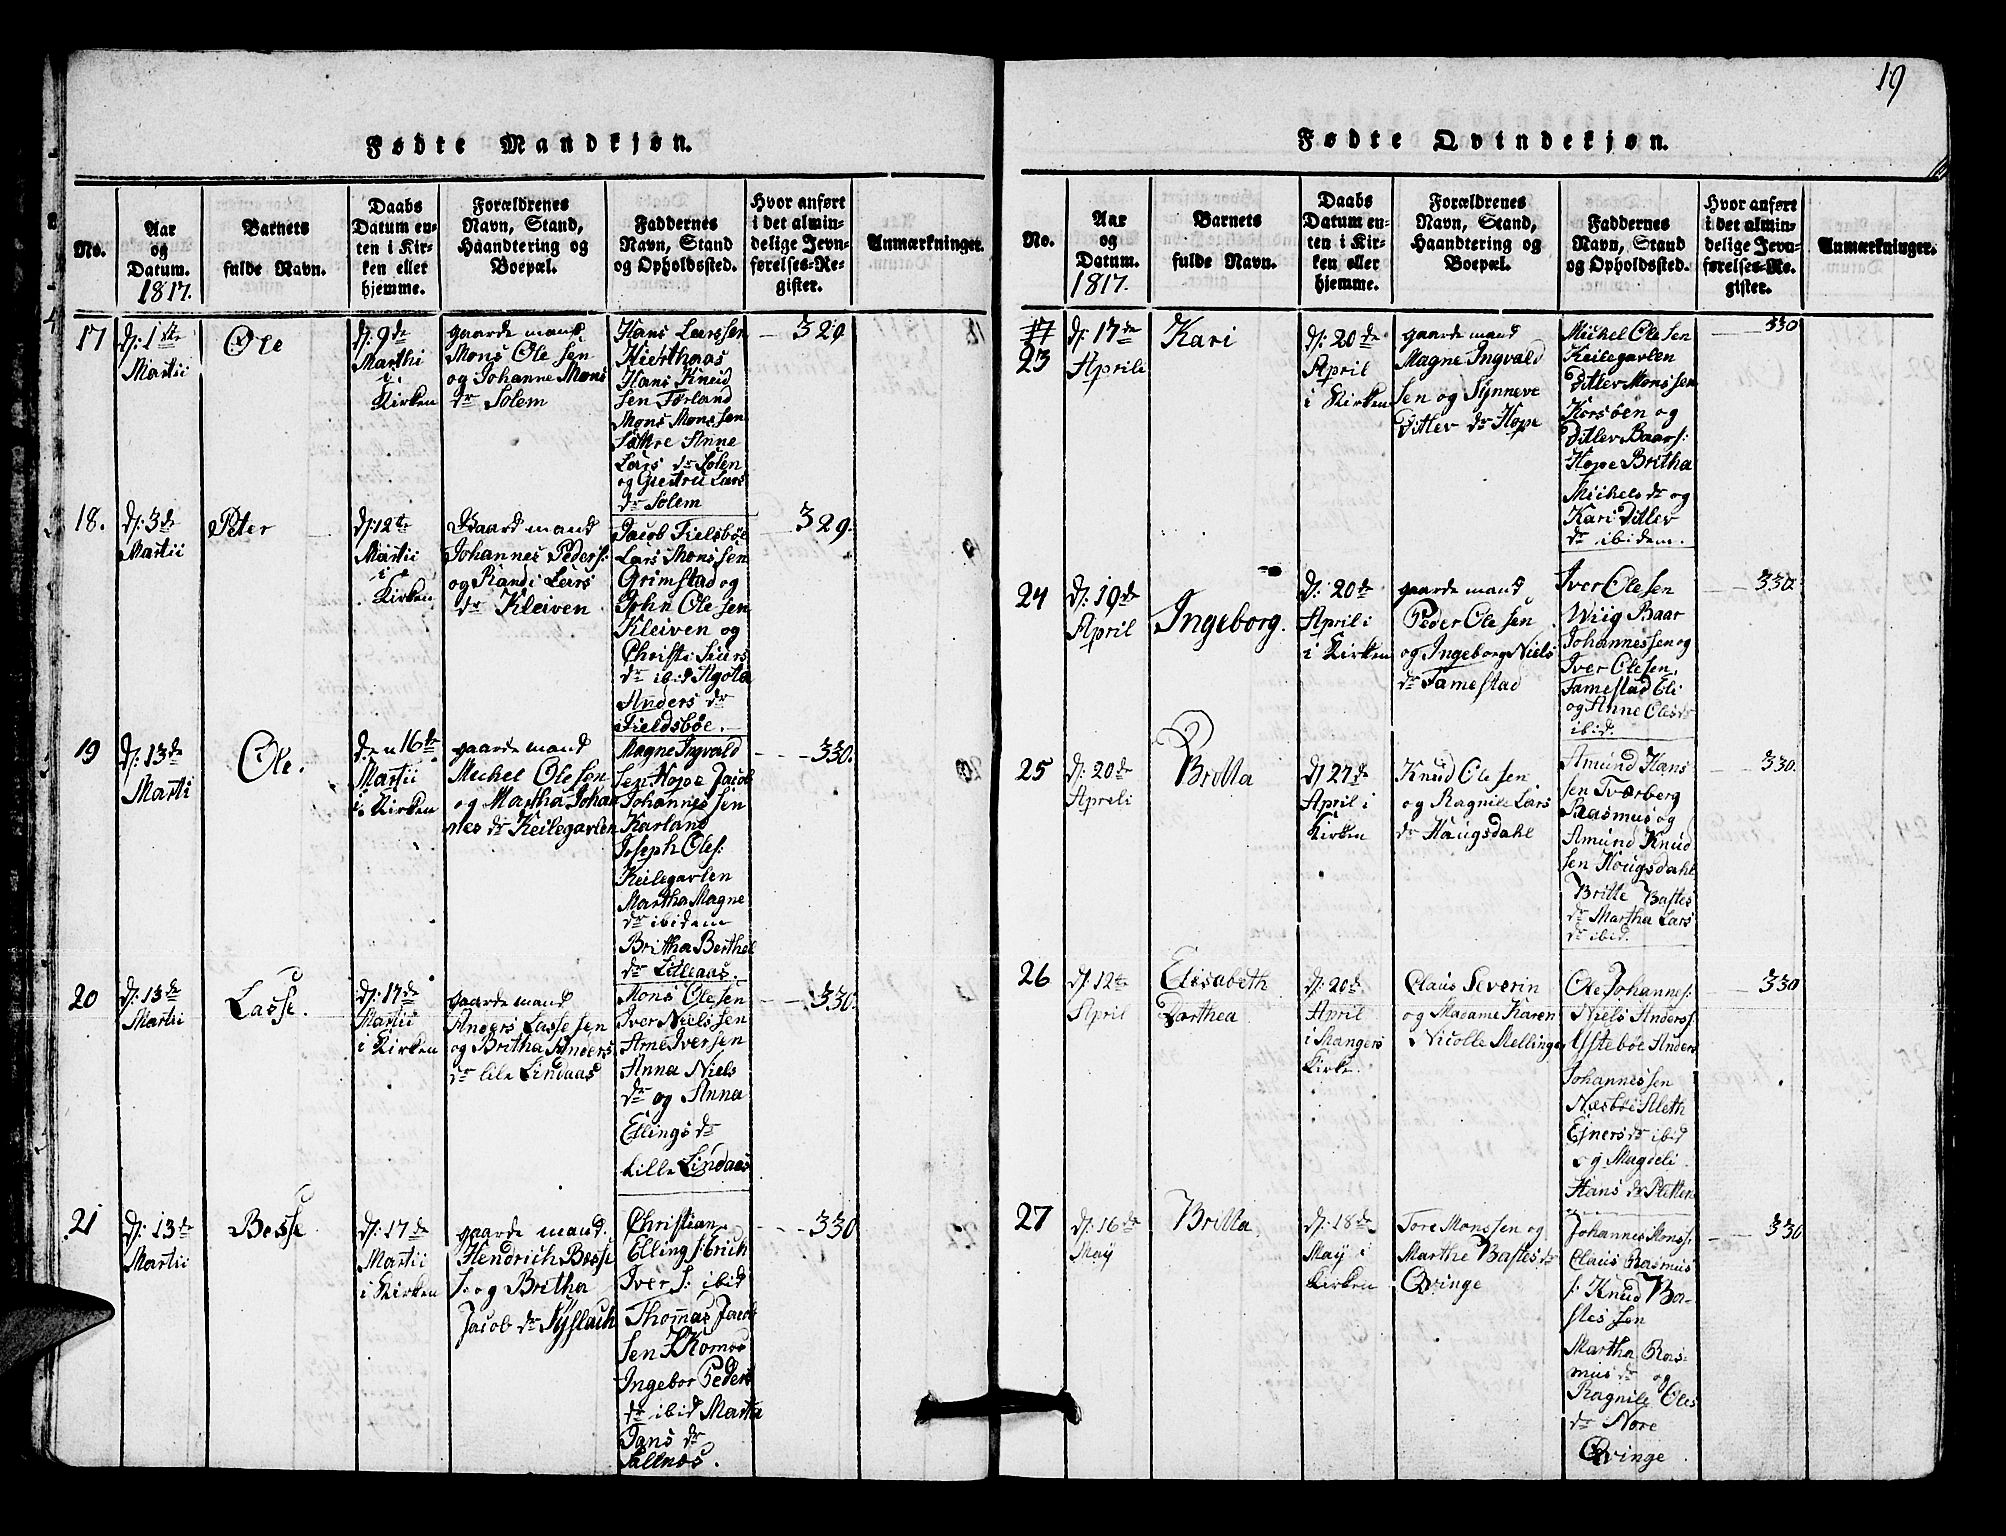 Fødte Mandkjøn.
No.
Aar
og
Datum.
1817.
Barnets
fulde Navn.
Daabs
Datum en-
ten i Kir-
ken eller
hjemme.
Forældrenes
Navn, Stand,
Haandtering og
Boepæl.
Faddernes
Navn, Stand
og Opholdssted.
Hvor anført
i det almin-
delige Jevn-
førelses-Re-
gister.
Anmærkninger.
17
d: 1ste
Martii
Ole
d: 9de
Marthi
i
Kirken
gaardemand
Mons Olesen
og Johanne Mons
dr Solem
Hans Larssen
Hierthaas
Hans Kneid
sen Førland
Mons Monssen
Sætre Anne
Lars dr Solen
og Giestru Lars
dr Solem
329
18.
d: 3de
Martii
Peter
d: 12te
Martii
i
Kirken
Gaardmand
Johannes Peders:
og Randi Lars
dr Kleiven
Jacob Fielsbøe
Lars Monssen
Grimstad og
John Olesen
Kleiven og
Christi Siurs
dr ibid Agota
Anders dr
Fieldsbøe.
329.
19
d: 13de
Marti
Ole.
den 16de
Martii
i Kirken
gaardemand
Michel Olesen
og Martha Johan
nes dr Keilegavlen
Magne Ingvald
sen Hope Jacob
Johannessen
Karland
Joseph Oles:
Keilegavlen
Martha Magne
dr ibidem
Britha Berthel
dr Lilleaas.
330.
20
d: 13de
Martii
Lasse.
d: 17de
Martii
i Kirken
gaardemand
Anders Lassesen
og Britha Anders
dr lile Lindaas
Mons Olesen
Iver Nielssen
Arne Iversen
Anna Niels
dr og Anna
Ellings dr
Lille Lindaas
330.
21
d: 13de
Martii
Besse
d: 17de
Martii
i Kirken
gaardemand.
Hendrich Besse
s: og Britha
Jacob dr Syslach
Christian
Elling s: Erich
Iver s: ibid
Thommas Jacob
sen
Ingebor Peders
dr ibid Marta
Jans dr
Sallnæs.
330
19
Fødte Qvindekjøn.
No.
Aar
og
Datum.
1817.
Barnets
fulde Navn.
Daabs
Datum en-
ten i Kir-
ken eller
hjemme.
Forældrenes
Navn, Stand,
Haandtering og
Boepæl.
Faddernes
Navn, Stand
og Opholdssted.
Hvor anført
i det almin-
delige Jevn-
førelses-Re-
gister.
Anmærkninger.
17
23
d: 17de
Aprili
Kari
d: 20de
April
i Kirken
gaardemand
Magne Ingvald
sen og Synneve
Ditlev dr Hope
Michel Olesen
Keilegavlen
Ditlev Monssen
Korsøen og
Ditlev Baars:
Hope Britha
Michels dr og
Kari Ditlev
dr ibidem.
330
24
d: 19de
April
Ingeborg.
d: 20de
April i
i Kirken
gaardemand
Peder Olesen
og Ingeborg Niels
dr Famestad
Iver Olesen
Wiig Baar
Johannessen og
Iver Olesen
Famestad Eli
og Anne Oles dr
ibid.
330.
25
d: 20de
Apreli
Britta
d 27de
April i
Kirken
Knud Olesen
og Ragnile Lars
dr Haugsdahl
Amund Hans
sen Tværberg
Rasmus og
Amund Knud
sen Hougsdahl
Britte Bastes
dr Martha Lars
dr ibid.
330.
26
d: 12te
April
Elisabeth
Dorthea
d: 20de
April
i Mangers
Kirke.
Claus Severin
og Madame Karen
Nicolle Mellinge
Ole Johannes:
Niels Anderss
Ystebøe Anders
Johannessen
Næsbøe Aleth
Ejners dr ibid
og Magdeli
Hans dr Sletten
330
27
d: 16de
Maÿ
Britta
d: 18de
Maÿ i
Kirken
Tore Monssen og
Marthe Bastes dr
Qvinge
Johannes Mons:
Claus Rasmus
s: Knud Ba-
stes sen
Martha Ras-
mus dr og
Ragnile Oles
dr Nore
Qvinge
330